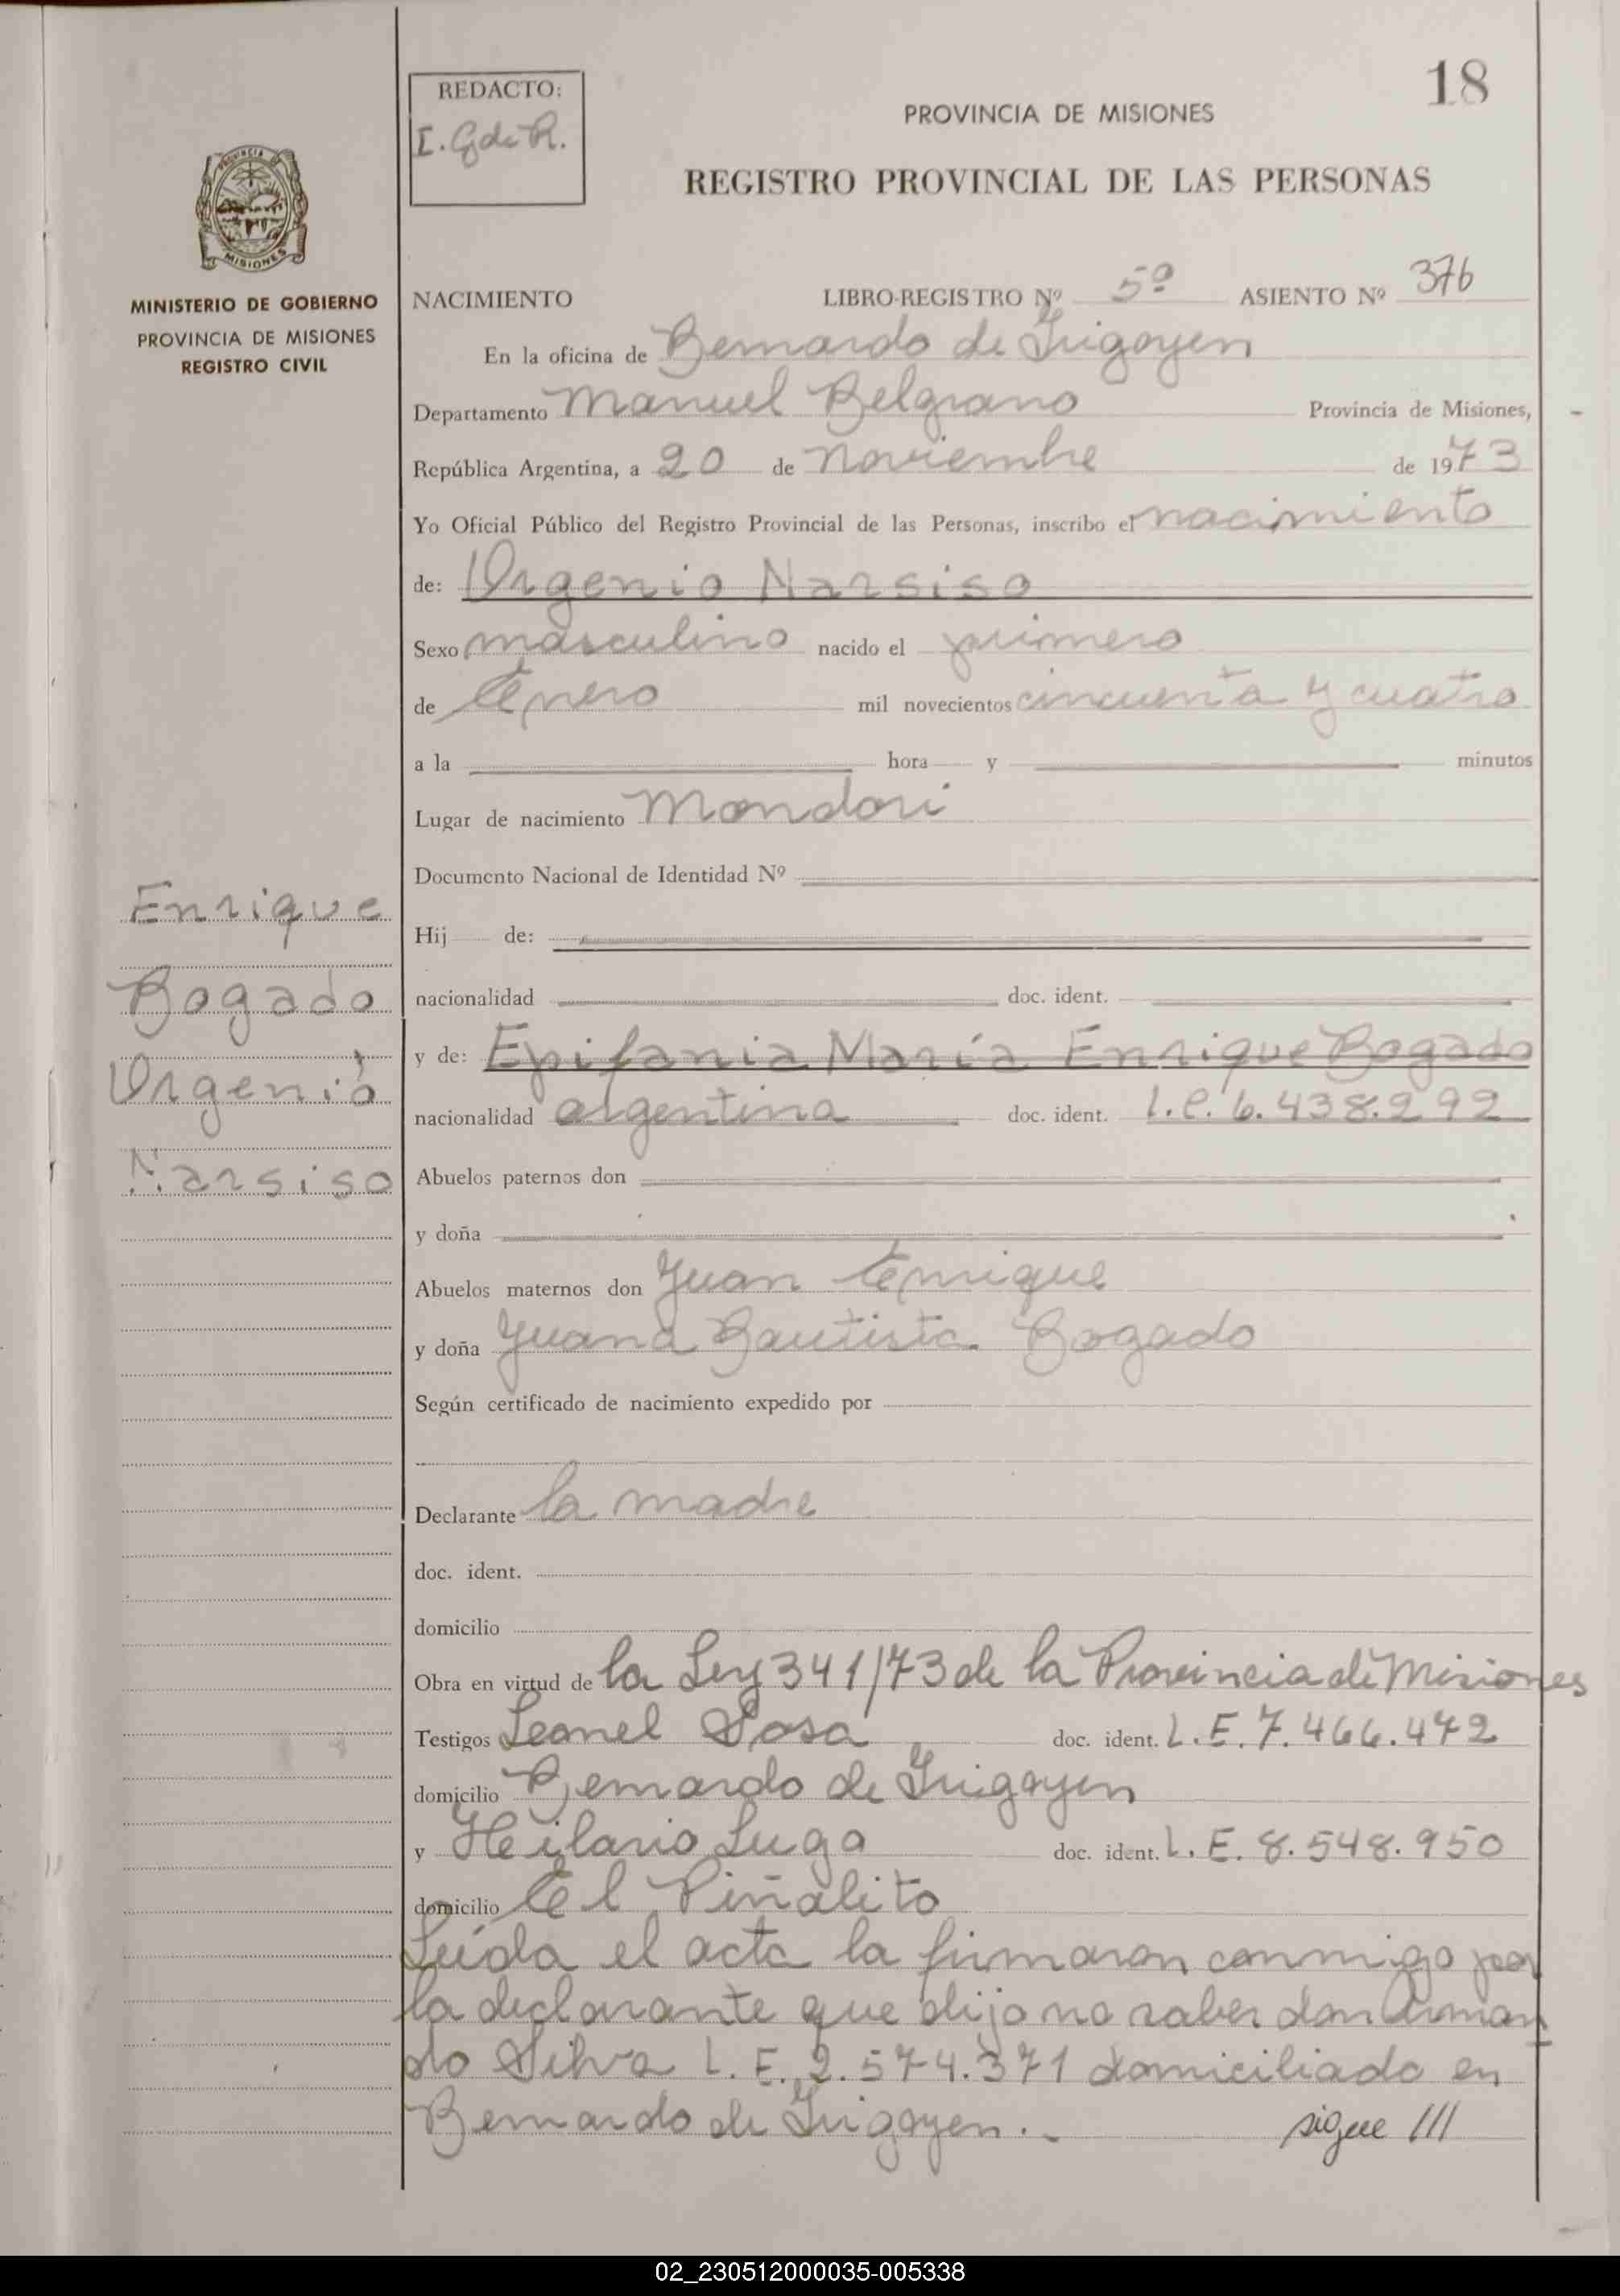 18
REDACTO:
I. G de R.
PROVINCIA DE MISIONES
REGISTRO PROVINCIAL DE LAS PERSONAS
PROVINCIA
MISIONES
MINISTERIO DE GOBIERNO
PROVINCIA DE MISIONES
REGISTRO CIVIL
NACIMIENTO LIBRO-REGISTRO Nº 5º ASIENTO Nº 376
En la oficina de Bernardo de Irigoyen
Departamento Manuel Belgrano Provincia de Misiones,
República Argentina, a 20 de noviembre de 1973
Yo Oficial Público del Registro Provincial de las Personas, inscribo el nacimiento
de: Urgenio Narsiso
Sexo masculino nacido el primero
de Enero mil novecientos cincuenta y cuatro
a la hora y minutos
Lugar de nacimiento Mondori
Documento Nacional de Identidad Nº
Hij de:
nacionalidad doc. ident.
y de: Epifania María Enrique Bogado
nacionalidad argentina doc. ident. L.C. 6.438.292
Abuelos paternos don
y doña
Abuelos maternos don Juan Enrique
y doña Juana Bautista Bogado
Según certificado de nacimiento expedido por
Declarante la madre
doc. ident.
domicilio
Obra en virtud de la Ley 341/73 de la Provincia de Misiones
Testigos Leonel Sosa doc. ident. L.E. 7.466.472
domicilio Bernardo de Irigoyen
y Heilario Luga doc. ident. L.E. 8.548.950
domicilio El Piñalito
Leída el acta la firmaron conmigo por
la declarante que dijo no saber don Arman
do Silva L.E. 2.574.371 domiciliado en
Bernardo de Irigoyen.- sigue ///
Enrique
Bogado
Urgenio
Narsiso
02_230512000035-005338